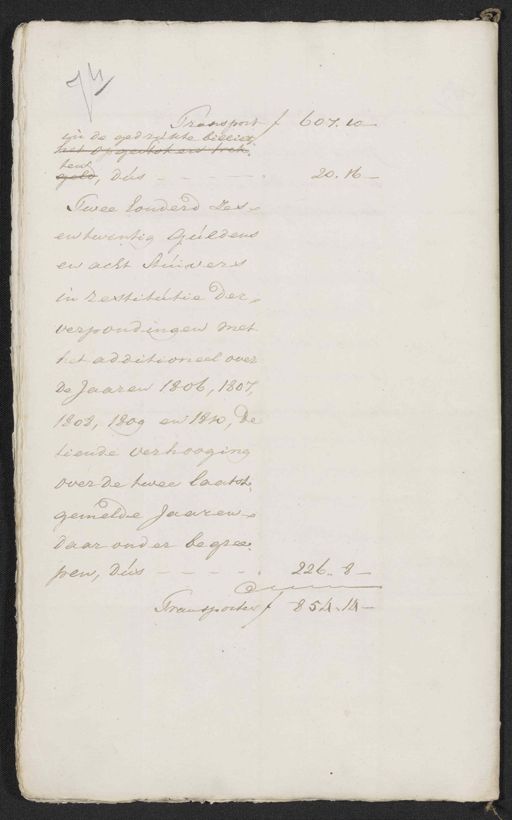 Transport f 607.10 —
in de gedrukte billiet
het opgestoken trek
ten
geld, dús - - - - . 20.16 —
Twee honderd zes-
entwintig gúldens
en acht stúivers
in restitútie der
verpondingen met
het additioneel over
de Jaaren 1806, 1807,
1808, 1809 en 1810, de
tiende verhooging
over de twee laatst,
gemelde Jaaren -
daar onder begree,
pen, dús - - - - . 226.8 —
Transporter f 854.14 —